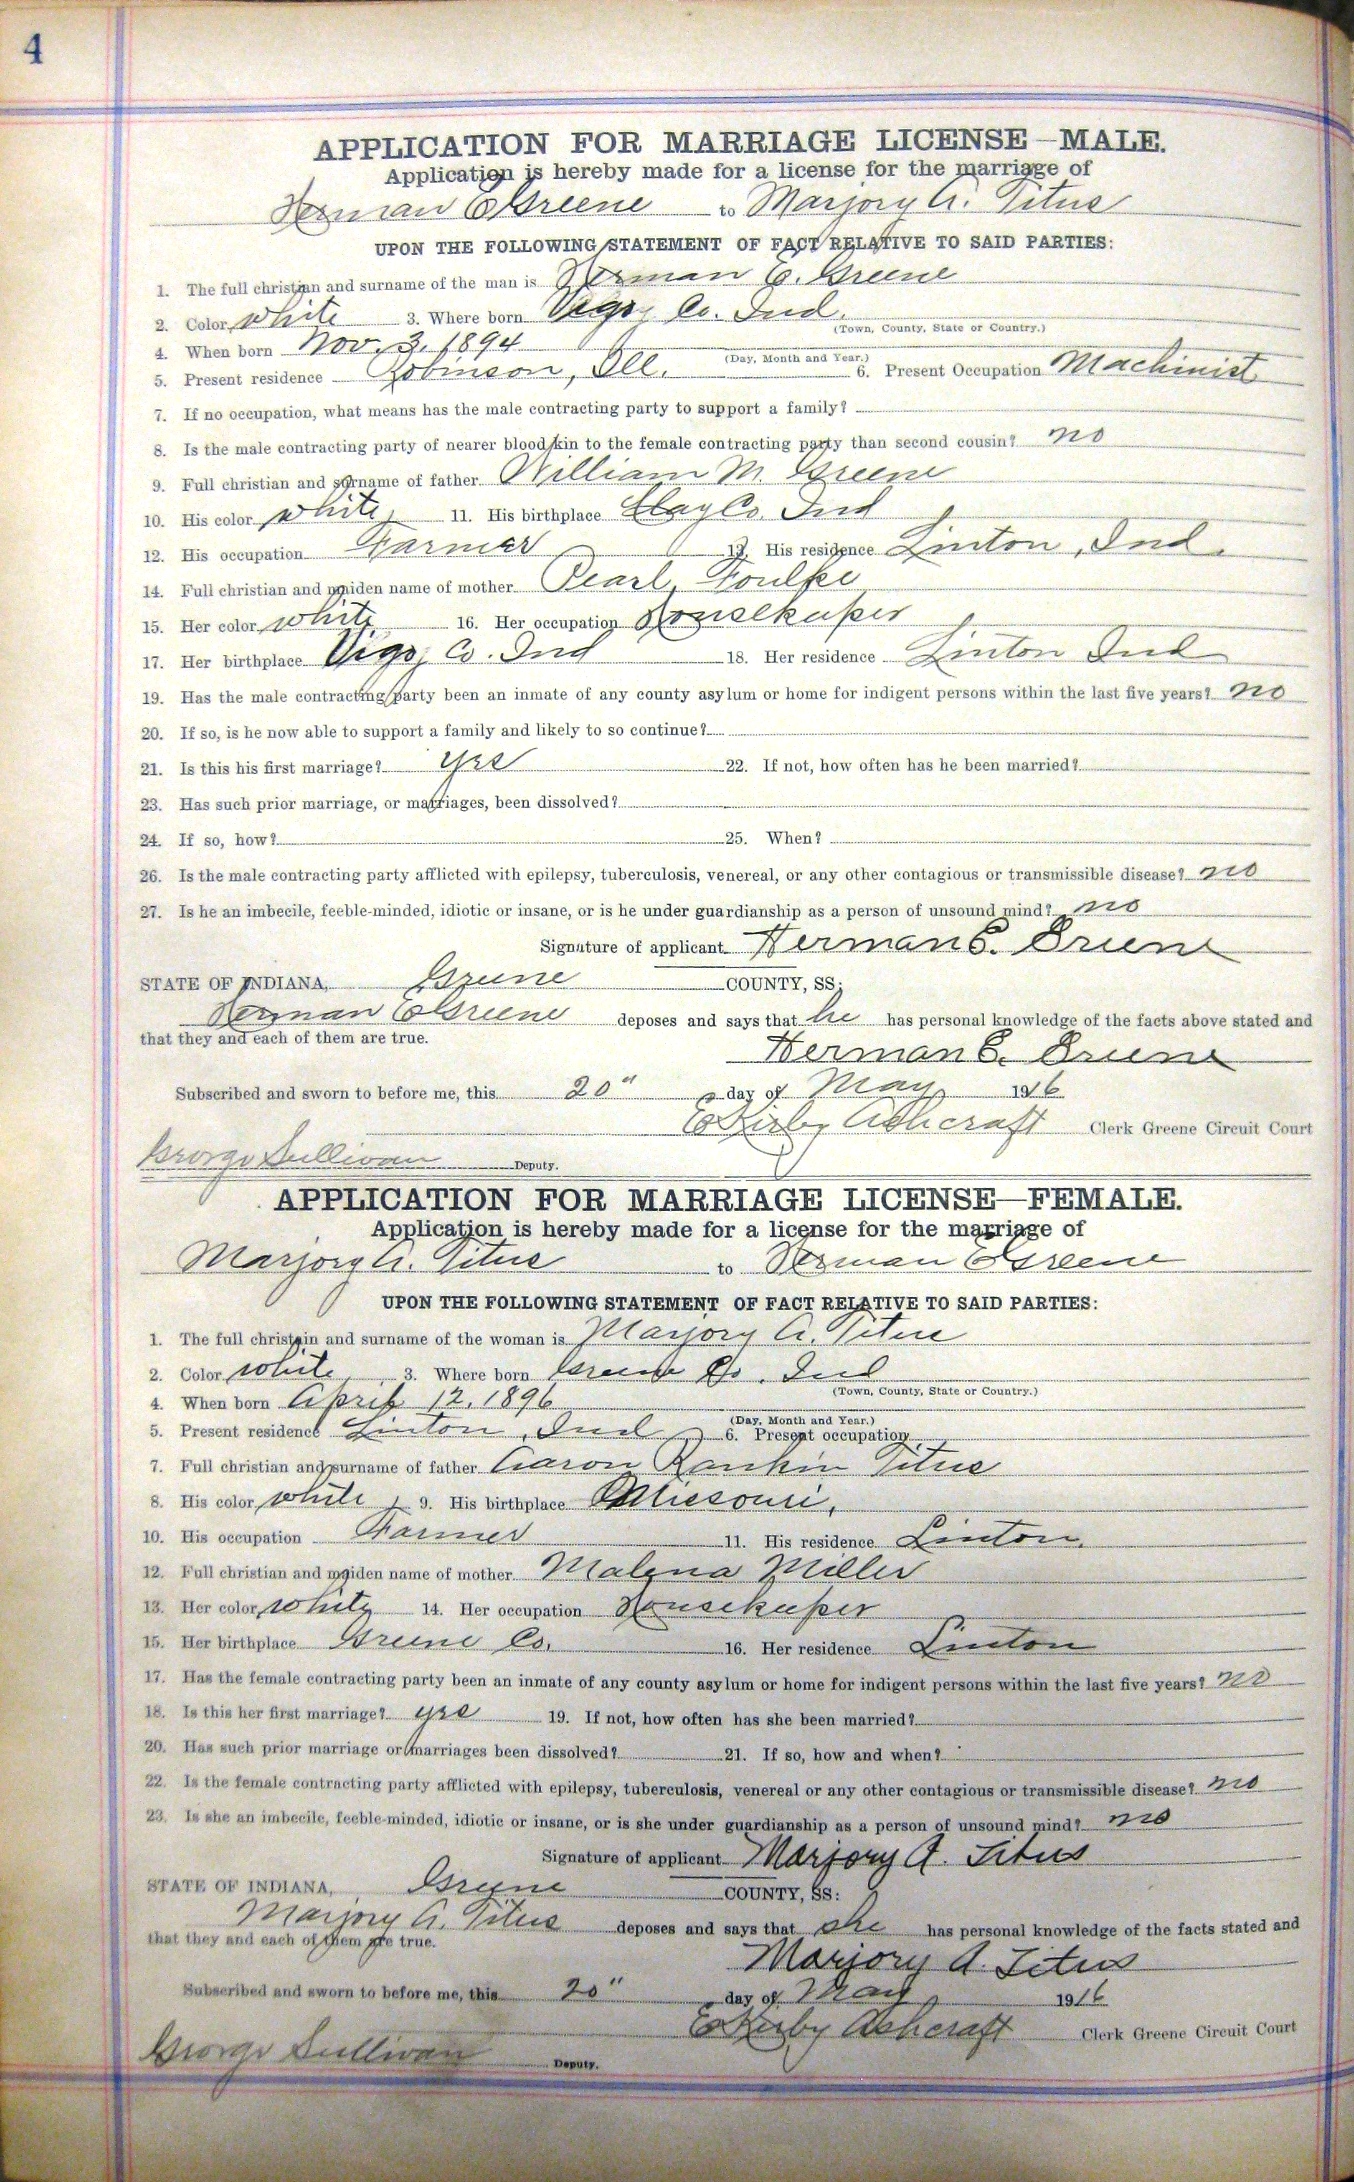 4
APPLICATION FOR MARRIAGE LICENSE—MALE.
Application is hereby made for a license for the marriage of
Herman E Greene to Marjory A. Titus
UPON THE FOLLOWING STATEMENT OF FACT RELATIVE TO SAID PARTIES:
1. The full christian and surname of the man is Herman E. Greene
2. Color white 3. Where born Vigo Co. Ind.
(Town, County, State or Country.)
4. When born Nov. 3, 1894
(Day, Month and Year.)
5. Present residence Robinson, Ill. 6. Present Occupation Machinist
7. If no occupation, what means has the male contracting party to support a family?
8. Is the male contracting party of nearer blood kin to the female contracting party than second cousin? no
9. Full christian and surname of father William M. Greene
10. His color white 11. His birthplace Clay Co. Ind
12. His occupation Farmer 13. His residence Linton, Ind.
14. Full christian and maiden name of mother Pearl Foulke
15. Her color white 16. Her occupation Housekeeper
17. Her birthplace Vigo Co. Ind 18. Her residence Linton Ind
19. Has the male contracting party been an inmate of any county asylum or home for indigent persons within the last five years? no
20. If so, is he now able to support a family and likely to so continue?
21. Is this his first marriage? yes 22. If not, how often has he been married?
23. Has such prior marriage, or marriages, been dissolved?
24. If so, how? 25. When?
26. Is the male contracting party afflicted with epilepsy, tuberculosis, venereal, or any other contagious or transmissible disease? no
27. Is he an imbecile, feeble-minded, idiotic or insane, or is he under guardianship as a person of unsound mind? no
Signature of applicant Herman E. Greene
STATE OF INDIANA, Greene COUNTY, SS:
Herman E Greene deposes and says that he has personal knowledge of the facts above stated and
that they and each of them are true.
Herman E. Greene
Subscribed and sworn to before me, this 20" day of May 1916
E Kirby Ashcraft Clerk Greene Circuit Court
George Sullivan Deputy.
APPLICATION FOR MARRIAGE LICENSE—FEMALE.
Application is hereby made for a license for the marriage of
Marjory A. Titus to Herman E Greene
UPON THE FOLLOWING STATEMENT OF FACT RELATIVE TO SAID PARTIES:
1. The full christain and surname of the woman is Marjory A. Titus
2. Color white 3. Where born Greene Co. Ind
(Town, County, State or Country.)
4. When born April 12, 1896
(Day, Month and Year.)
5. Present residence Linton, Ind 6. Present occupation
7. Full christian and surname of father Aaron Rankin Titus
8. His color white 9. His birthplace Missouri,
10. His occupation Farmer 11. His residence Linton.
12. Full christian and maiden name of mother Malena Miller
13. Her color white 14. Her occupation Housekeeper
15. Her birthplace Greene Co. 16. Her residence Linton
17. Has the female contracting party been an inmate of any county asylum or home for indigent persons within the last five years? no
18. Is this her first marriage? yes 19. If not, how often has she been married?
20. Has such prior marriage or marriages been dissolved? 21. If so, how and when?
22. Is the female contracting party afflicted with epilepsy, tuberculosis, venereal or any other contagious or transmissible disease? no
23. Is she an imbecile, feeble-minded, idiotic or insane, or is she under guardianship as a person of unsound mind? no
Signature of applicant Marjory A. Titus
STATE OF INDIANA, Greene COUNTY, SS:
Marjory A. Titus deposes and says that she has personal knowledge of the facts stated and
that they and each of them are true.
Marjory A. Titus
Subscribed and sworn to before me, this 20" day of May 1916
E Kirby Ashcraft Clerk Greene Circuit Court
George Sullivan Deputy.